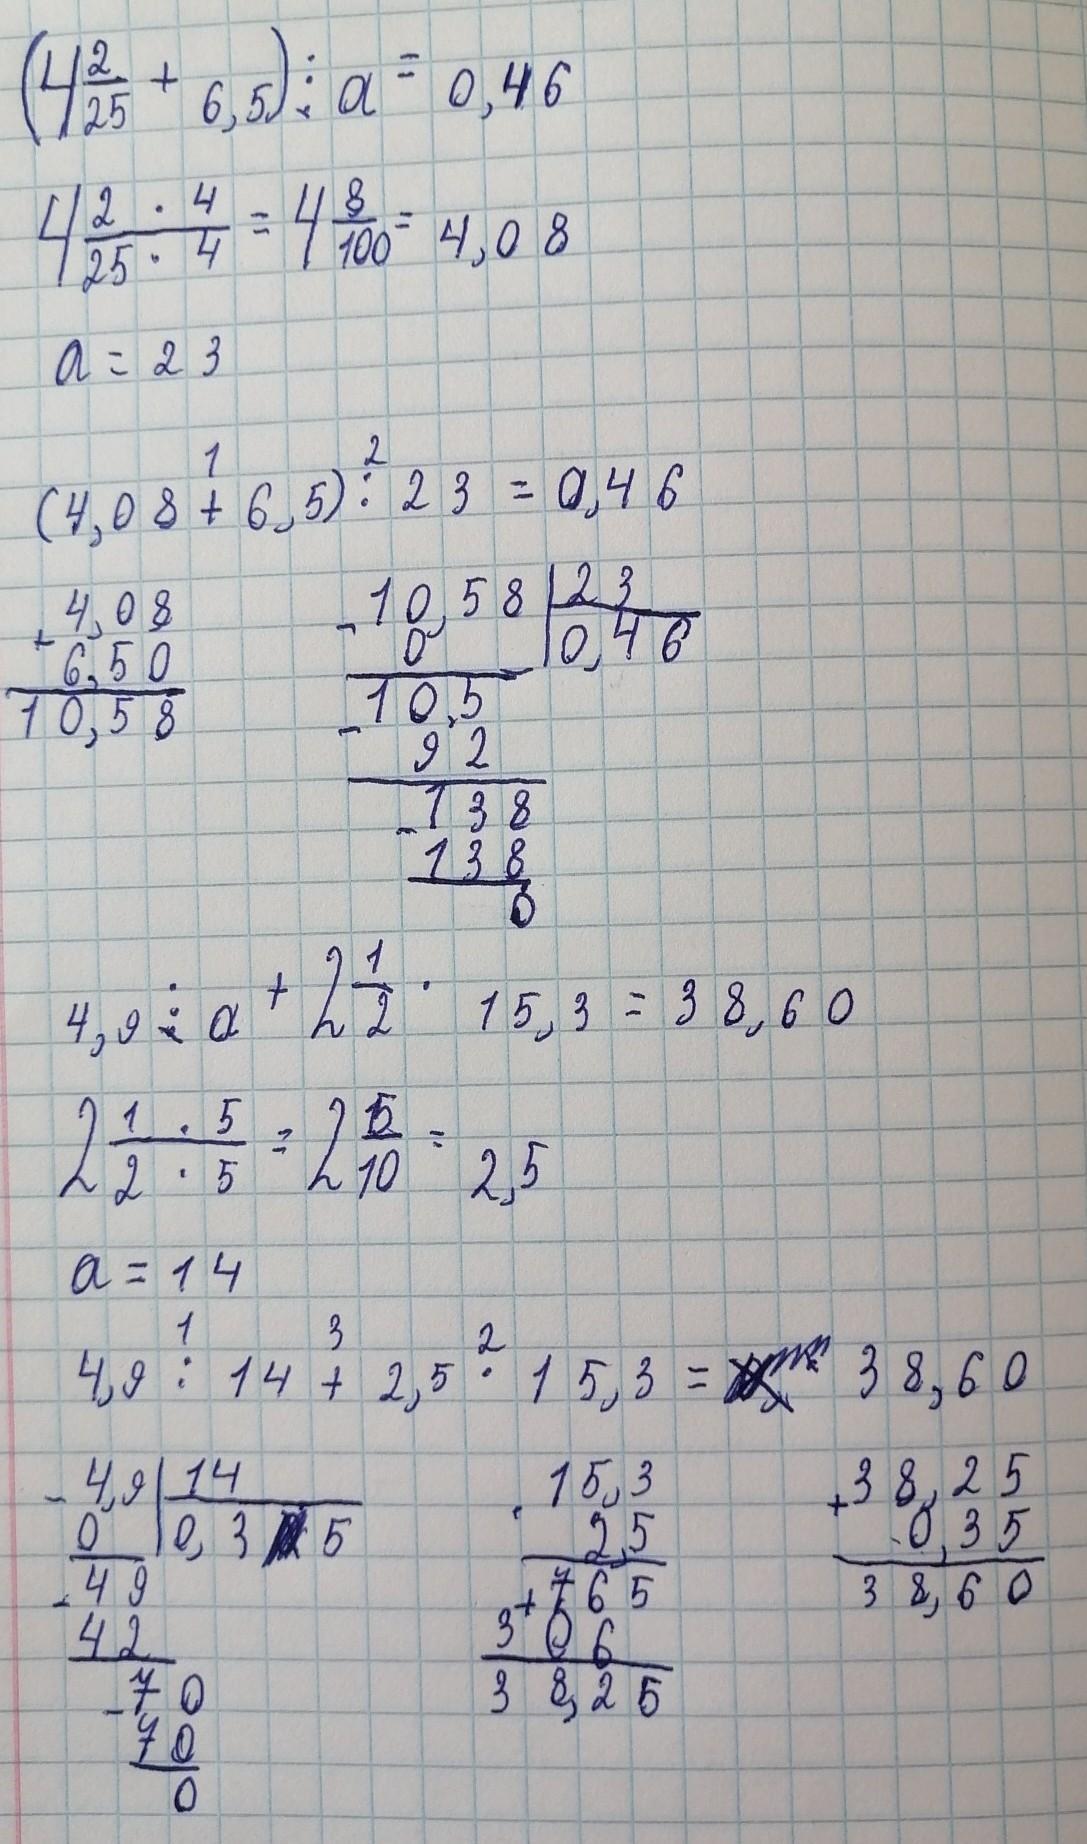 (4 2/25 + 6,5) : a = 0,46
4 2 · 4/25 · 4 = 4 8/100 = 4,08
a = 23
1 2
(4,08 + 6,5) : 23 = 0,46
4,08
+ 6,50
10,58
- 10,58 | 23
0 | 0,46
- 10,5
92
- 138
138
0
4,9 : a + 2 1/2 · 15,3 = 38,60
2 1 · 5/2 · 5 = 2 5/10 = 2,5
a = 14
1 3 2
4,9 : 14 + 2,5 · 15,3 = 38,60
- 4,9 | 14
0 | 0,35
- 49
42
- 70
70
0
· 15,3
2,5
+ 765
306
38,25
+ 38,25
0,35
38,60